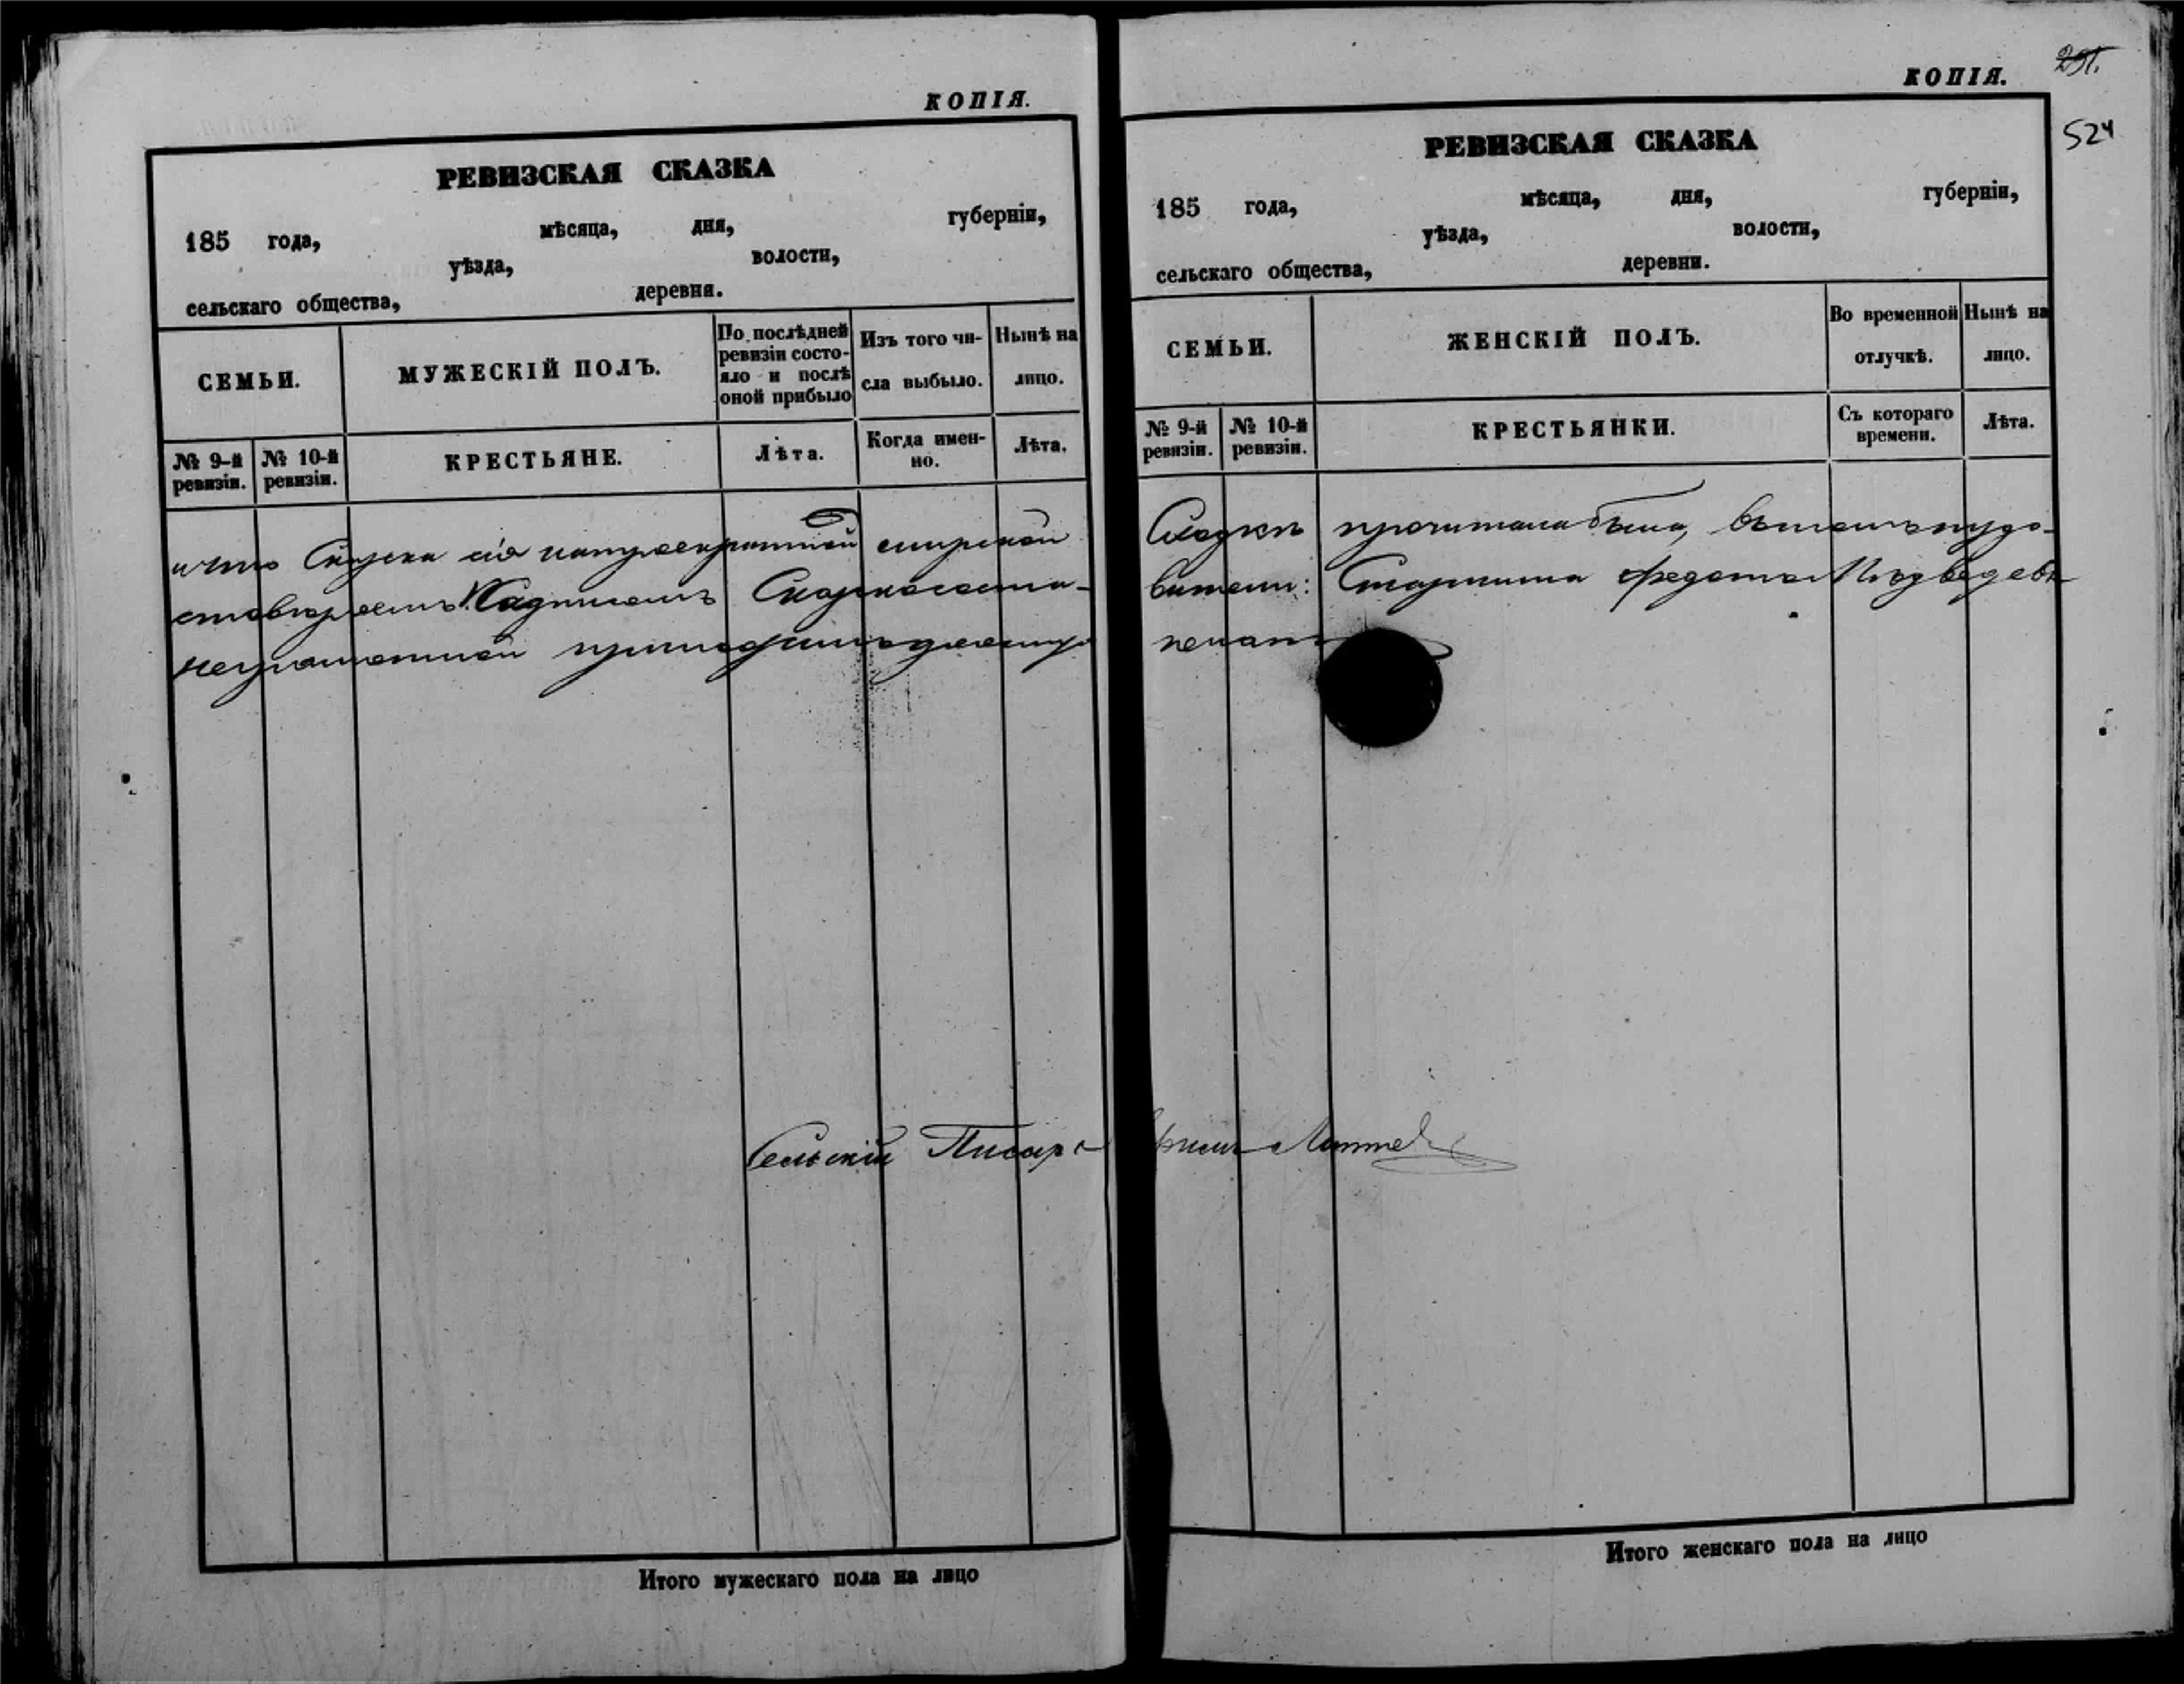 КОПІЯ.
РЕВИЗСКАЯ СКАЗКА
185 года, мѣсяца, дня, губерніи,
уѣзда, волости,
сельскаго общества, деревни.
СЕМЬИ.
МУЖЕСКІЙ ПОЛЪ.
По послѣдней
ревизіи состо-
яло и послѣ
оной прибыло
Изъ того чи-
сла выбыло.
Нынѣ на
лицо.
№ 9-й
ревизіи.
№ 10-й
ревизіи.
КРЕСТЬЯНЕ.
Лѣта.
Когда имен-
но.
Лѣта.
что Сказка сія
неграмотной
Сельскій Писарь
Итого мужескаго пола на лицо
КОПІЯ.
291.
524
РЕВИЗСКАЯ СКАЗКА
185 года, мѣсяца, дня, губерніи,
уѣзда, волости,
сельскаго общества, деревни.
СЕМЬИ.
ЖЕНСКІЙ ПОЛЪ.
Во временной
отлучкѣ.
Нынѣ на
лицо.
№ 9-й
ревизіи.
№ 10-й
ревизіи.
КРЕСТЬЯНКИ.
Съ котораго
времени.
Лѣта.
Сходкѣ прочитана была, въ томъ удо-
Старшина Федотъ Медведевъ
Итого женскаго пола на лицо